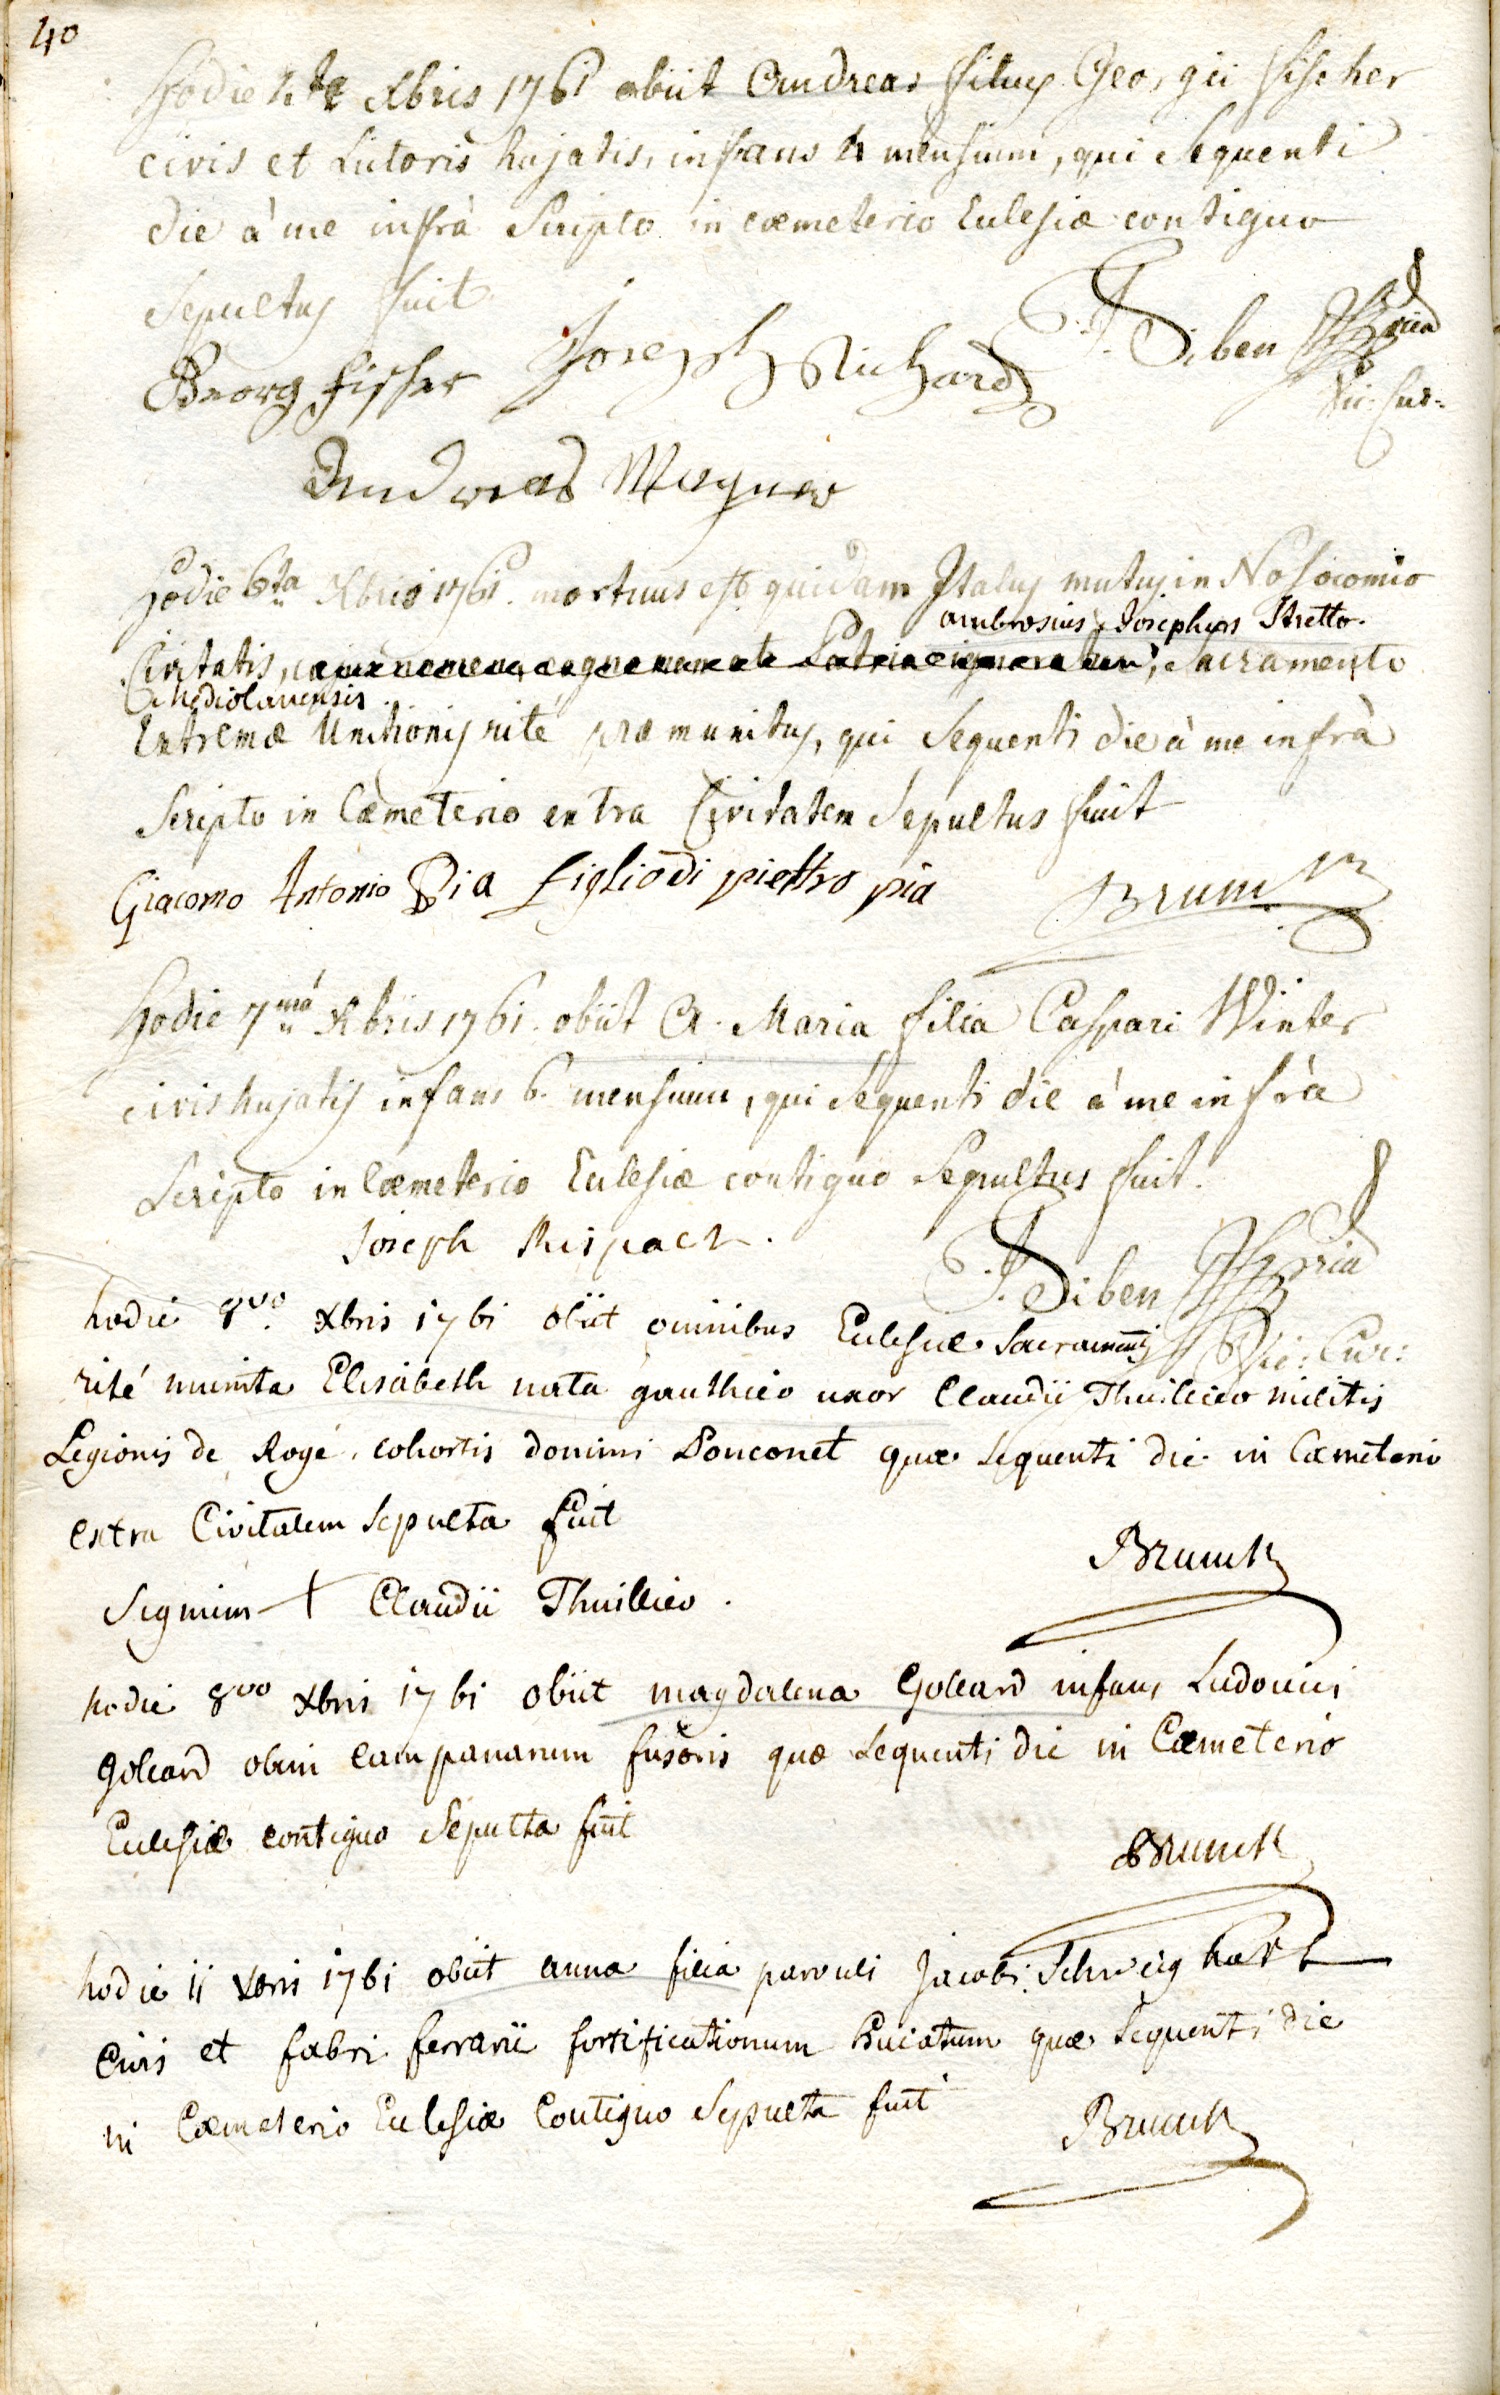 40
Hodie 4ta Xbris 1761 obiit Andreas filius Georgii fischer
civis et Sutoris hujatis, infans 4 mensium, qui Sequenti
die à me infrà Scripto in cæmeterio Eclesiæ contiguo
Sepultus fuit
Georg fisher Joseph Richard F. J. Siben
Vic: Cur:
Andreas Wagner
Hodie 6ta Xbris 1761. mortuus est quidam Italus mutus in Nosocomio
ambrosius Josephus Stretto.
Civitatis, Sacramento
Mediolanensis.
Extremæ Unctionis rité præmunitus, qui Sequenti die à me infrà
Scripto in Cæmeterio extra Civitatem Sepultus fuit
Giacomo Antonio Pia figlio di piettro pia Brunck
Hodie 7mâ Xbris 1761. obiit A. Maria filia Caspari Winter
civis hujatis infans 6. mensium, qui Sequenti die à me infrà
Scripto in Cæmeterio Eclesiæ contiguo Sepultus fuit.
Joseph Rispach. F. J. Siben
Vic: Cur:
hodie 8vo. Xbris 1761 obiit omnibus Eclesiæ Sacramentis
rité munita Elisabeth nata gauthier uxor Claudii Thuillier militis
Legionis de Rogé, cohortis domini Ponconet quæ sequenti die in Cæmeterio
extra Civitatem sepulta fuit
Brunck
Signum + Claudii Thuillier.
hodie 8vo Xbris 1761 obiit magdalena Goleard infans Ludovici
Goleard olim campanarum fusoris quæ sequenti die in Cæmeterio
Eclesiæ contiguo Sepulta fuit
Brunck
hodie 11 Xbris 1761 obiit anna filia parvuli Jacobi Schweighart
Civis et fabri ferrarii fortificationum quæ sequenti die
in Cæmeterio Eclesiæ Contiguo Sepulta fuit
Brunck